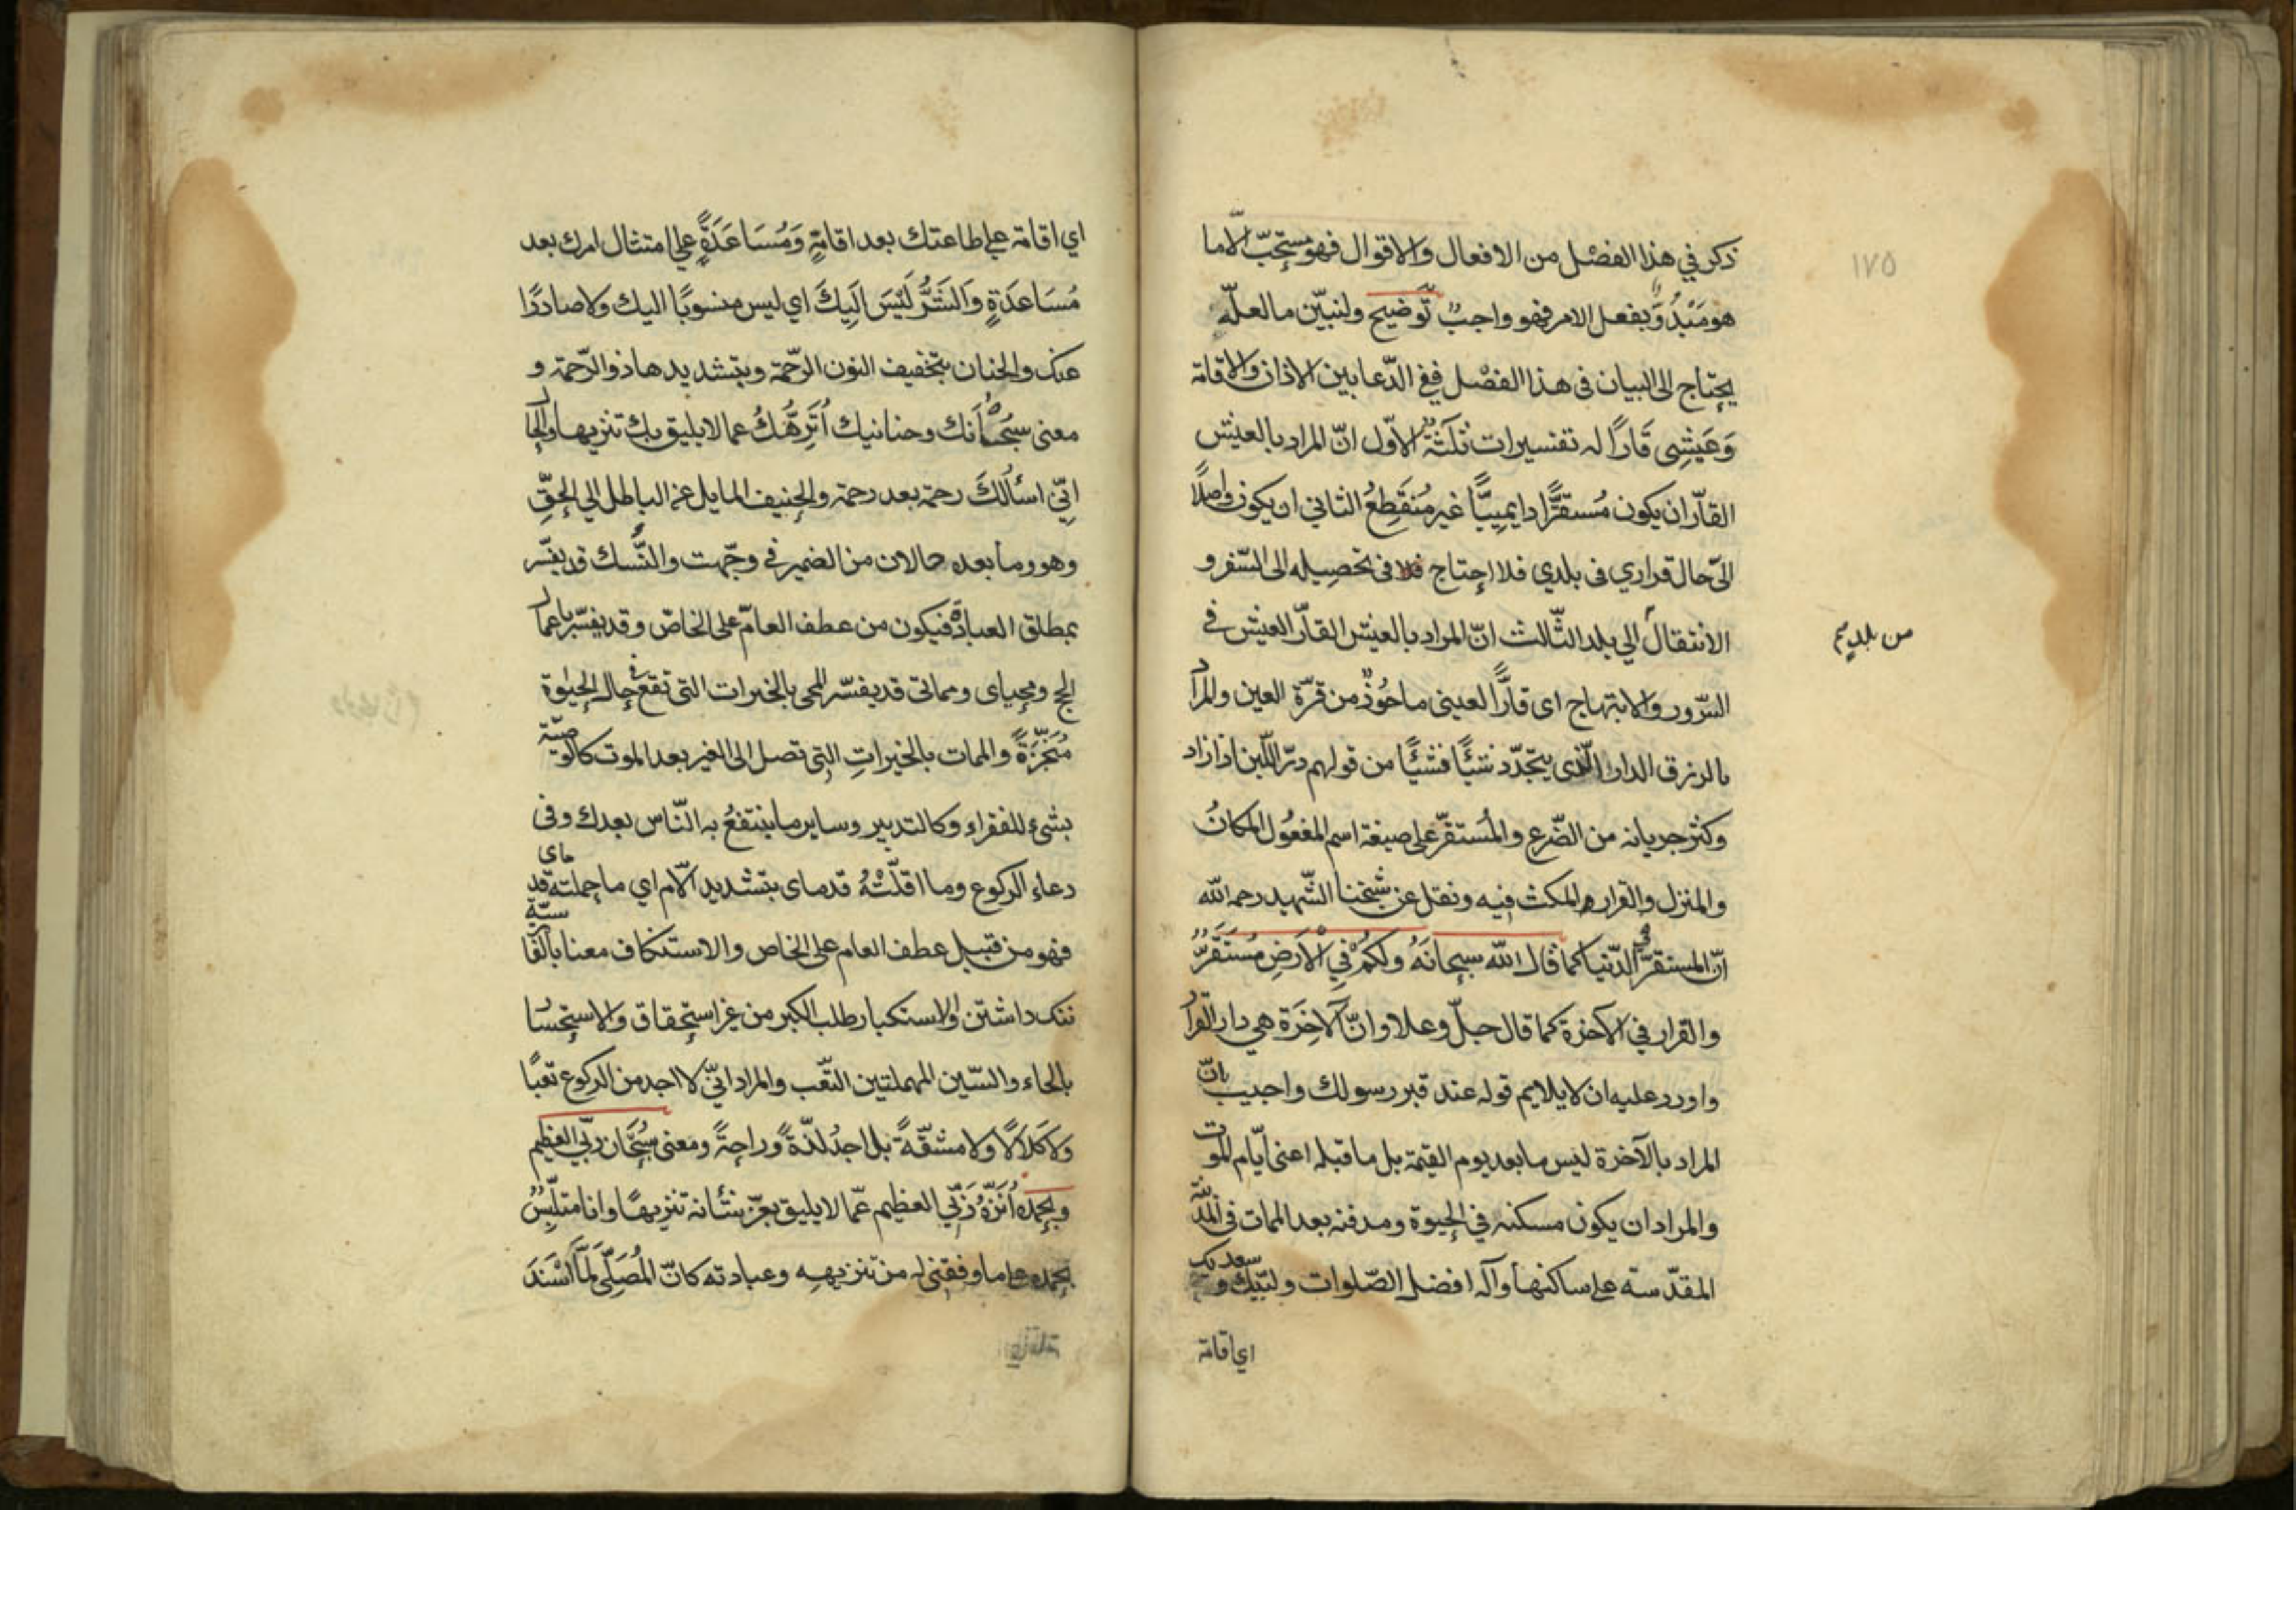 ١٧٥
ذكر في هذا الفصل من الافعال والاقوال فهو مستحبّ الّا ما
هو مَبْدُوٌّ بفعل الامر فهو واجبٌ توضيح ولنبيّن ما لعلّه
يحتاج الى البيان فى هذا الفصْل ففى الدّعا بين الاذان والاقامة
وَعَيشِى قَارًّا له تفسيرات ثلثة الاوّل انّ المراد بالعيش
القارّ ان يكون مُستقرًّا دايميًّا غير مُنقَطِعٍ الثاني ان يكون واصلًا
الىّ حال قراري فى بلدي فلا احتاج فى تحصيله الى السّفر و
الانتقال الي بلد الثّالث انّ المراد بالعيش القارّ العيش في
من بلد م
السّرور والابتهاج اى قارًّا لعينى ماخوذٌ من قرّة العين والمراد
بالرزق الدارّ الّذى يتجدّد شيئًا فشيئًا من قولهم درّ اللّبن اذا زاد
وكثر جريانه من الضّرع والمُستقرّ على صيغة اسم المفعُول المكانُ
والمنزل والقرار المكث فيه ونقل عن شيخنا الشّهيد رحمه الله
انّ المستقرّ في الدّنيا كما قال الله سبحانَهُ ولكُمْ فِي الْاَرضِ مُسْتَقَرٌّ
والقرار في الآخرة كما قال جلّ وعلا وانّ الآخِرَة هي دار القرار
واورد عليه ان لا يلايم قوله عند قبر رسولك واجيب بانّ
المراد بالآخرة ليس ما بعد يوم القيمة بل ما قبله اعنى ايّام الموت
والمراد ان يكون مسكنه في الحيوة ومدفنه بعد الممات فى المدينة
المقدّسة على ساكنها وآله افضل الصّلوات ولبّيك وسعديك
اي اقامة
اي اقامة على طاعتك بعد اقامةٍ وَمُسَاعَدَةً علي امتثال امرك بعد
مُسَاعدَةٍ وَالشَّرُّ لَيْسَ اِلَيكَ اي ليس منسوبًا اليك ولا صادرًا
عنك والحنان بتخفيف النون الرّحمة وبتشديدها ذو الرّحمة و
معنى سبحانك وحنانيك اُنَزِّهُكَ عما لا يليق بك تنزيها والحال
انّي اسئالُكَ رحمة بعد رحمة والحنيف المايل عن الباطل الي الحقّ
وهو وما بعده حالان من الضمير في وجّهت والنُّسك قد يفسّر
بمطلق العبادة فيكون من عطف العامّ على الخاصّ وقد يفسّر باعمال
الحج ومحياى ومماتى قد يفسّر المحى بالخيرات التى تقع في حال الحيوة
مُنَجِّزَةً والممات بالخيراتِ التى تصل الى الغير بعد الموت كالوصيّة
بشىءٍ للفقراء وكالتدبير وساير ما ينتفعُ به النّاس بعدك وفى
دعاء الركوع وما اقلّتْهُ قدماى بتشديد اللّام اي ما حملته قدماى
فهو من قبيل عطف العام على الخاص والاستنكاف معنا بالفارسيّة
ننك داشتن والاستكبار طلب الكبر من غير استحقاق والاستحسار
بالحاء والسّين المهملتين التعّب والمراد انّي لا اجد من الركوع تعبًا
وَلا كَلالًا ولا مشقّةً بل اجدُ لذّةً وراحةً ومعنى سُبْحَان ربّي العظيم
وبحمده اُنَزّهُ رَبّي العظيم عمّا لا يليق بعزّ شأنه تنزيهًا وانا متلبّسٌ
بحمده على ما وفقنى له من تنزيهه وعبادته كانّ المُصَلّى لمّا اَسْنَدَ